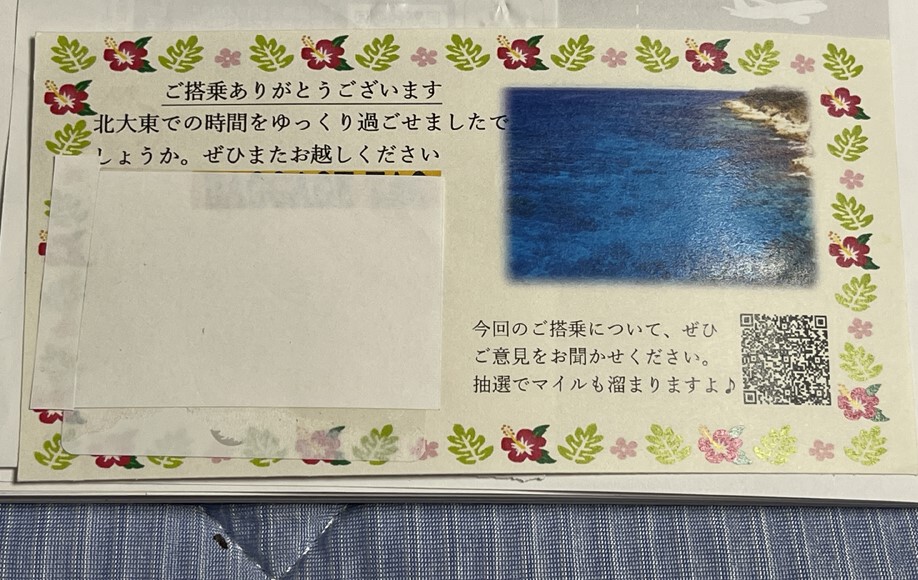 ご搭乗ありがとうございます
北大東での時間をゆっくり過ごせましたで
しょうか。ぜひまたお越しください
今回のご搭乗について、ぜひ
ご意見をお聞かせください。
抽選でマイルも溜まりますよ♪